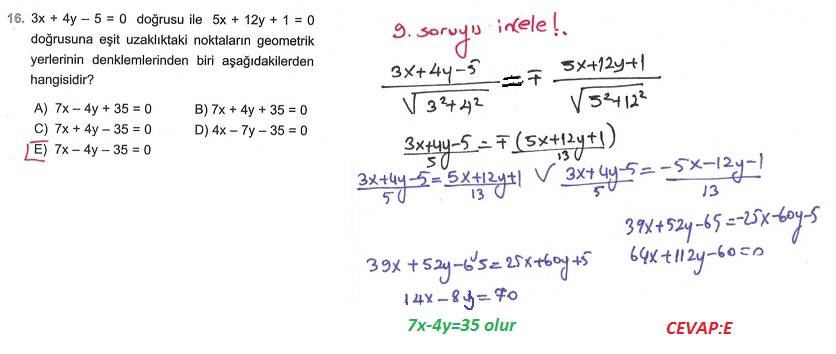 16. 3x + 4y – 5 = 0 doğrusu ile 5x + 12y + 1 = 0
doğrusuna eşit uzaklıktaki noktaların geometrik
yerlerinin denklemlerinden biri aşağıdakilerden
hangisidir?
A) 7x – 4y + 35 = 0 B) 7x + 4y + 35 = 0
C) 7x + 4y – 35 = 0 D) 4x – 7y – 35 = 0
E) 7x – 4y – 35 = 0
9. soruyu incele!.
(3x+4y-5)/√(3²+4²) = ∓ (5x+12y+1)/√(5²+12²)
(3x+4y-5)/5 = ∓ (5x+12y+1)/13
(3x+4y-5)/5 = (5x+12y+1)/13 ∨ (3x+4y-5)/5 = (-5x-12y-1)/13
39x+52y-65=-25x-60y-5
64x+112y-60=0
39x+52y-65=25x+60y+5
14x-8y=70
7x-4y=35 olur
CEVAP:E